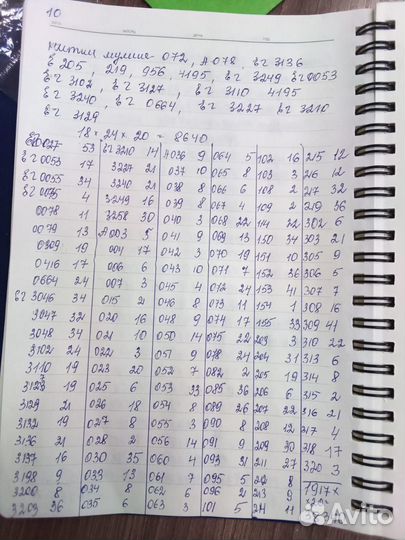 10
072, А078, БГ3136
205, 219, 956, 4195, БГ3249 БГ0053
БГ3102, БГ3127, БГ3110 4195
БГ3240, БГ0664, БГ3227 БГ3210
БГ3129
18 × 24 × 20 = 8640
53 БГ3210 14 А036 9 064 5 102 16 215 12
БГ0053 17 3227 21 037 10 065 8 103 3 216 12
БГ0055 34 3240 21 038 8 066 6 108 2 217 32
4 3249 16 039 8 067 4 109 2 219 36
0078 11 3258 30 040 3 068 22 114 22 302 6
0079 13 А003 5 041 9 069 13 150 34 303 21
0309 19 004 17 042 3 070 19 151 10 305 9
0416 17 006 6 043 10 071 7 152 36 306 5
0664 24 007 3 045 4 012 24 153 41 307 7
БГ3046 34 015 2 046 8 073 11 154 1 308 16
3047 32 020 16 048 9 074 17 155 33 309 41
3048 34 021 10 050 14 075 22 203 3 310 22
3102 24 022 3 051 9 078 24 204 31 313 6
3110 19 023 20 052 7 082 2 205 19 314 8
19 025 6 053 33 085 36 206 6 315 2
3129 21 026 18 054 8 089 26 207 22 316 21
3132 19 027 8 055 3 090 8 208 12 317 4
3136 21 028 2 056 14 091 9 209 30 318 17
3137 16 030 35 060 4 093 31 211 27 320 3
3198 9 033 13 061 7 095 5 212 8
3200 8 034 8 062 6 096 2 213 9 1917×
3203 36 035 6 063 3 101 5 214 11
Avito